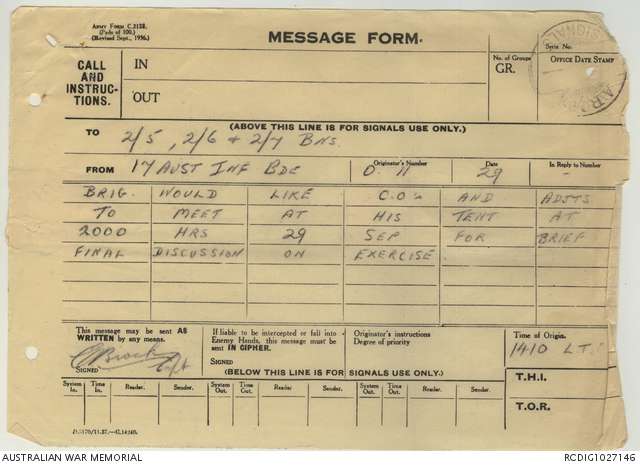 ARMY FORM C.2128.
(Pads of 100.)
(Revised Sept., 1936.)
MESSAGE FORM.
Serial No.
CALL AND INSTRUCTIONS.
IN
OUT
No. of Groups
GR.
OFFICE DATE STAMP
SIGNALS
(ABOVE THIS LINE IS FOR SIGNALS USE ONLY.)
TO 2/5, 2/6 & 2/7 BNS.
FROM 17 AUST INF BDE Originator's Number O. 11 Date 29 In Reply to Number -
BRIG. WOULD LIKE C.O's AND ADJTS
TO MEET AT HIS TENT AT
2000 HRS 29 SEP FOR BRIEF
FINAL DISCUSSION ON EXERCISE.
This message may be sent AS WRITTEN by any means.
SIGNED Capt
If liable to be intercepted or fall into Enemy Hands, this message must be sent IN CIPHER.
SIGNED
Originator's instructions
Degree of priority
Time of Origin.
1410 LT.
(BELOW THIS LINE IS FOR SIGNALS USE ONLY.)
T.H.I.
T.O.R.
System In. Time In. Reader. Sender. System Out. Time Out. Reader. Sender. System Out. Time Out. Reader. Sender.
AUSTRALIAN WAR MEMORIAL
RCDIG1027146